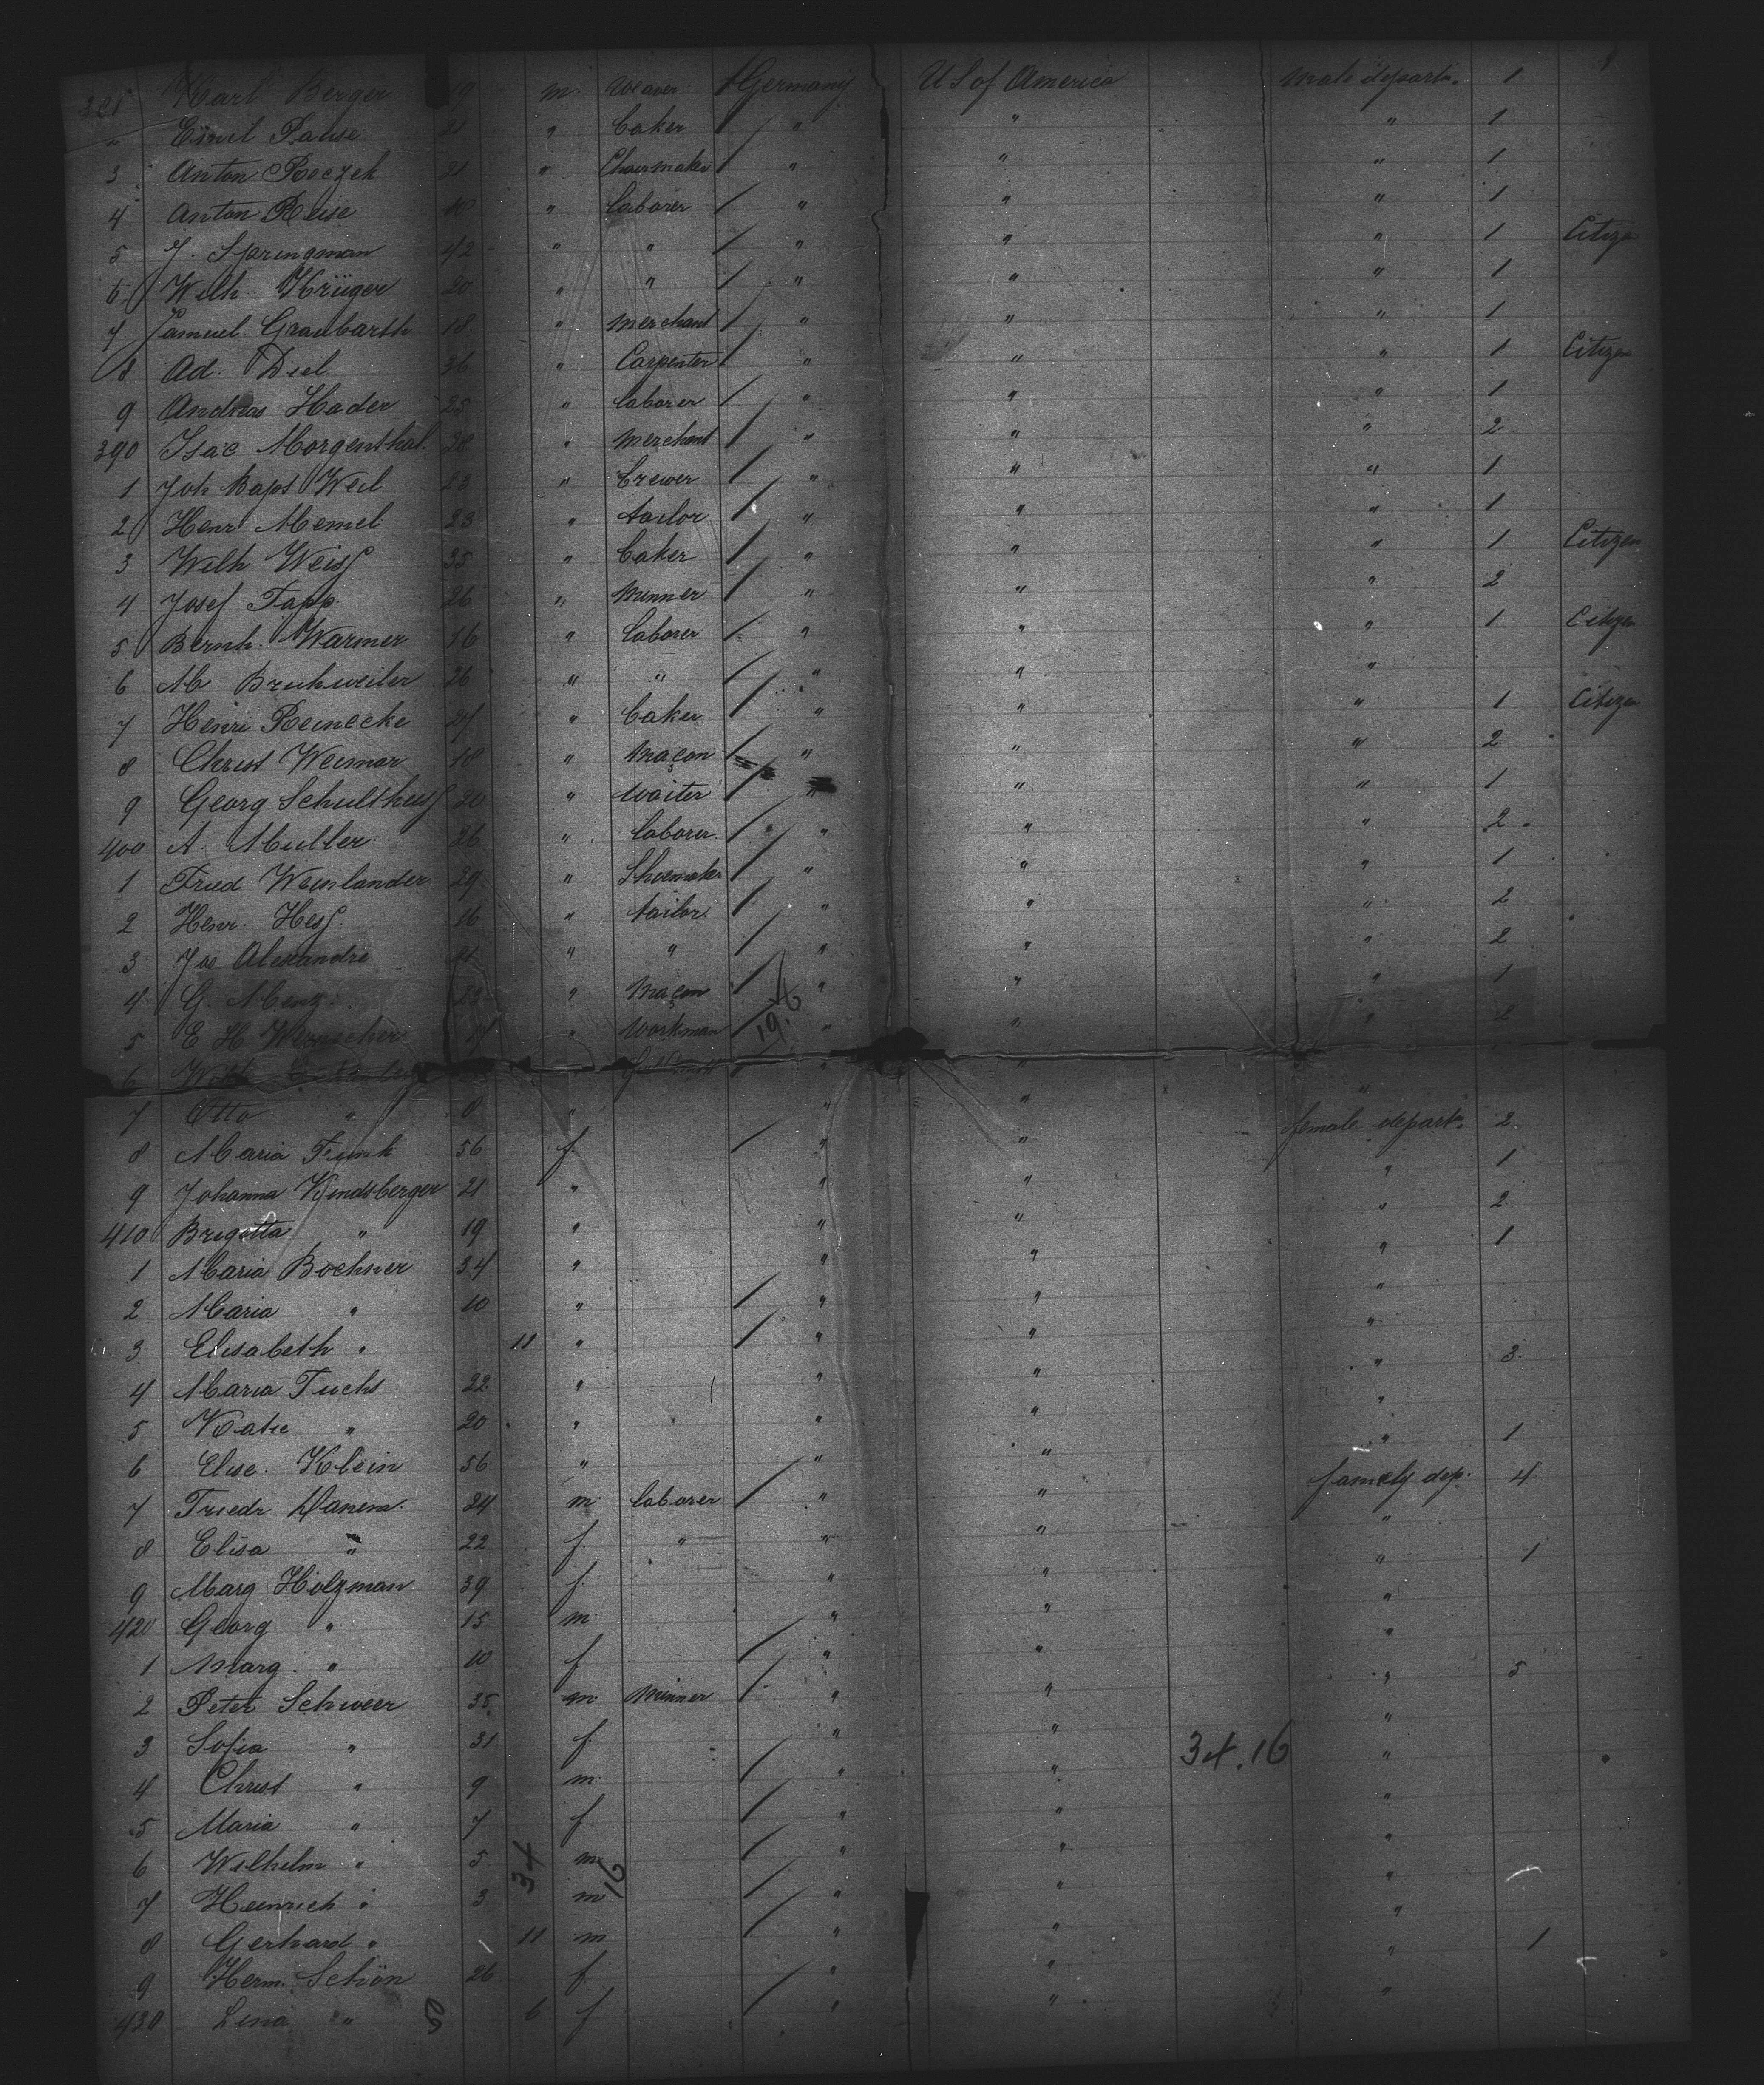 381 Karl Berger 19 m. weaver Germany U S of America male depart. 1
" Emil Pause 21 " baker " " " 1
3 Anton Roczek 21 " Chairmaker " " " 1
4 Anton Reise 40 " laborer " " " 1
5 J. Springman 42 " " " " " 1 Citizen
6 Wilh. Krüger 20 " " " " " 1
7 Samuel Graubarth 18 " merchant " " " 1
8 Ad. Diel 36 " Carpenter " " " 1 Citizen
9 Andreas Hader 25 " laborer " " " 1
390 Isac Morgenthal. 38 " merchant " " " 2
1 Joh Bapt Weil 23 " brewer " " " 1
2 Henr Memel 23 " tailor " " " 1
3 Wilh Weiss 35 " baker " " " 1 Citizen
4 Josef Tapp 26 " Minner " " " 2
5 Bernh. Warmer 16 " laborer " " " 1 Citizen
6 M Bruhweiler 26 " " " " "
7 Henri Reinecke 21 " baker " " " 1 Citizen
8 Christ Weimar 18 " maçon " " " 2
9 Georg Schulthess 20 " waiter " " " 1
400 A. Muller 26 " laborer " " " 2
1 Fried Weinlander 29 " Shoemaker " " " 1
2 Henr. Hess 16 " tailor " " " 2
3 Jos Alexandre 21 " " " " " 2
4 G. Menz 23 " maçon " " " 1
5 E H 17 " workman " " " 2
19.6
6 " " " "
7 Otto " 8 " " "
8 Maria Funk 56 f. " " female depart. 2
9 Johanna Kindsberger 21 " " " " 1
410 Brigetta " 19 " " " " 2
1 Maria Bochner 34 " " " " 1
2 Maria " 10 " " " "
3 Elisabeth " 11 " " " "
4 Maria Fuchs 22 " " " " 3
5 Katie " 20 " " " "
6 Elise. Klein 56 " " " " 1
7 Friedr Hanem. 24 m. laborer " " family dep. 4
8 Elisa " 22 f. " " " "
9 Marg Holzman 39 f. " " " 1
420 Georg " 15 m. " " "
1 Marg. " 10 f " " "
2 Peter Schweer 35 m Minner " " " 5
3 Sofia " 31 f. " " "
34.16
4 Christ " 9 m. " " "
5 Maria " 7 f " " "
6 Wilhelm " 5 m " " "
34 16
7 Heinrich " 3 m " " "
8 Gerhard " 11 m " " "
9 Herm. Schön 26 f. " " " 1
430 Lina " 6 f " " "